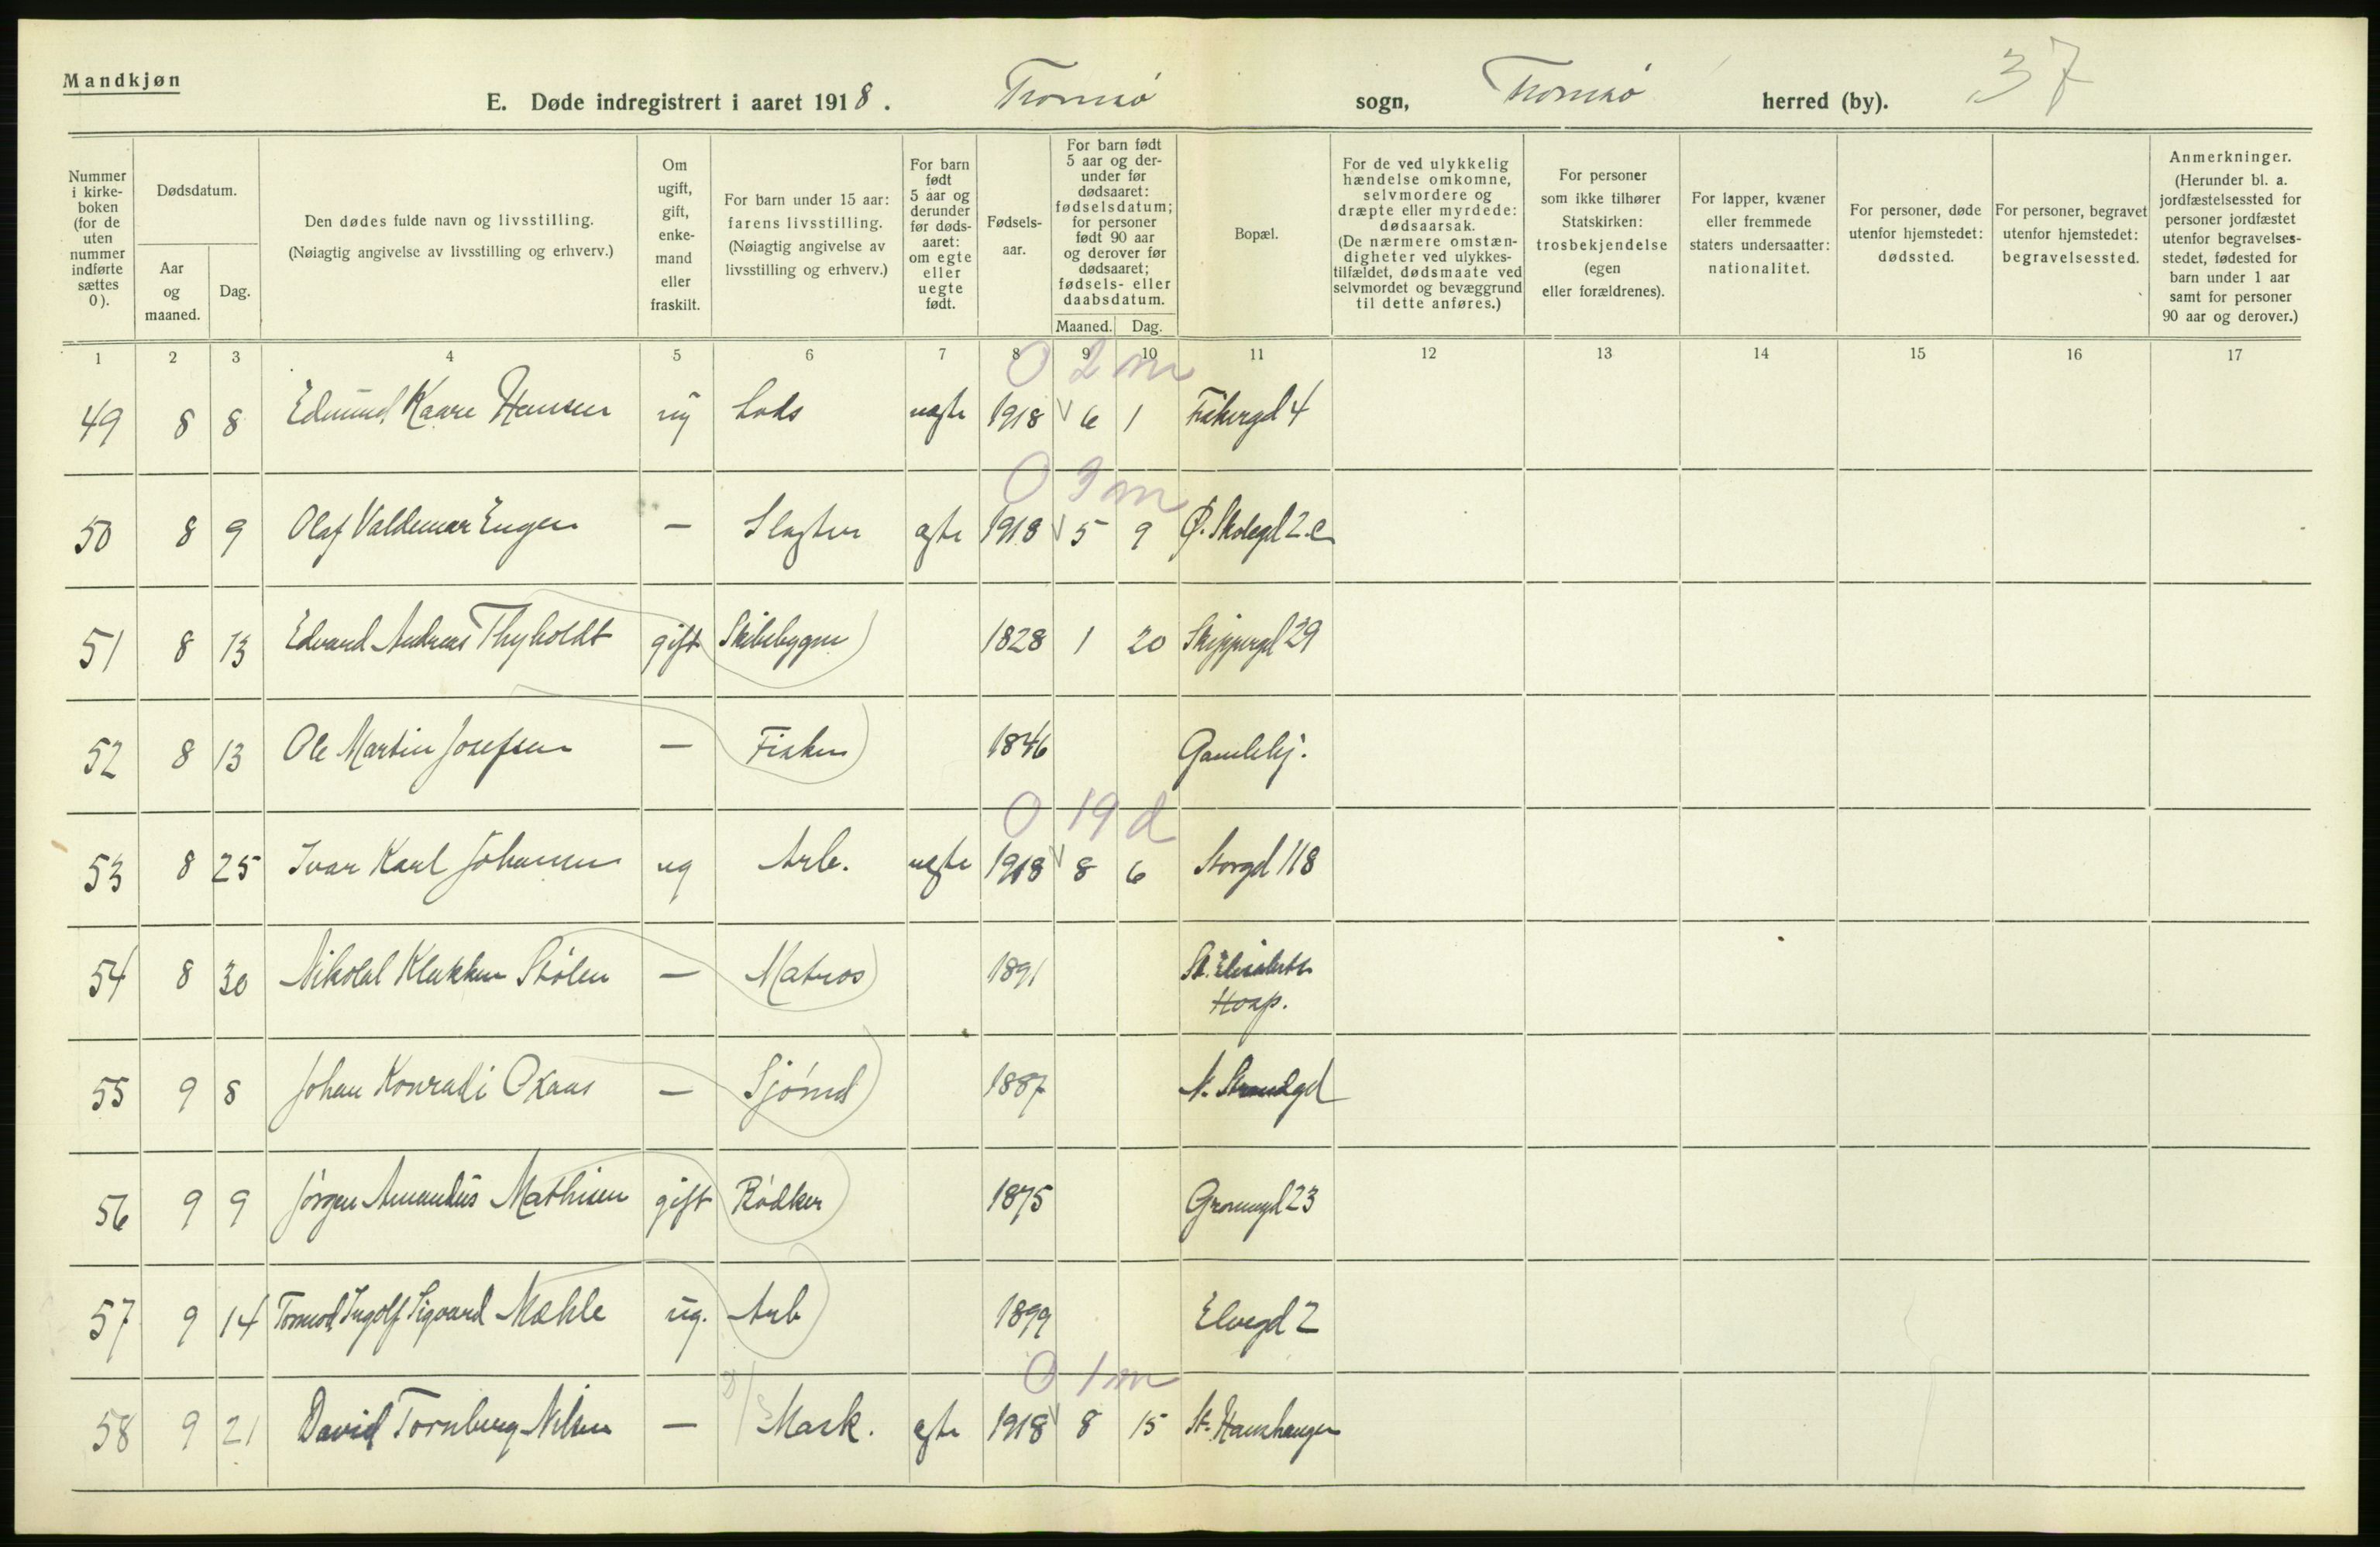 Mandkjøn
E. Døde indregistrert i aaret 1918. Tromsø sogn, Tromsø herred (by). 37
Nummer i kirke-boken (for de uten nummer indførte sættes 0).
Dødsdatum.
Aar og maaned.
Dag.
Den dødes fulde navn og livsstilling.
(Nøiagtig angivelse av livsstilling og erhverv.)
Om ugift, gift, enke-mand eller fraskilt.
For barn under 15 aar: farens livsstilling.
(Nøiagtig angivelse av livsstilling og erhverv.)
For barn født 5 aar og derunder før døds-aaret: om egte eller uegte født.
Fødsels-aar.
For barn født 5 aar og der-under før dødsaaret: fødselsdatum; for personer født 90 aar og derover før dødsaaret; fødsels- eller daabsdatum.
Maaned. Dag.
Bopæl.
For de ved ulykkelig hændelse omkomne, selvmordere og dræpte eller myrdede: dødsaarsak.
(De nærmere omstæn-digheter ved ulykkes-tilfældet, dødsmaate ved selvmordet og bevæggrund til dette anføres.)
For personer som ikke tilhører Statskirken: trosbekjendelse (egen eller forældrenes).
For lapper, kvæner eller fremmede staters undersaatter: nationalitet.
For personer, døde utenfor hjemstedet: dødssted.
For personer, begravet utenfor hjemstedet: begravelsessted.
Anmerkninger.
(Herunder bl. a. jordfæstelsessted for personer jordfæstet utenfor begravelses-stedet, fødested for barn under 1 aar samt for personer 90 aar og derover.)
1 2 3 4 5 6 7 8 9 10 11 12 13 14 15 16 17
0 2 m
49 8 8 Edmund Kaare Hansen ug Lods uegte 1918 6 1 Fiskergd 4
0 3 m
50 8 9 Olaf Valdemar Engen — Slagter egte 1918 5 9 Ø. Skolegd 2.c
51 8 13 Edvard Andreas Thyholdt gift Skibsbygger 1828 1 20 Skippergd 29
52 8 13 Ole Martin Josefsen — Fisker 1846 Gamlehj.
0 19 d
53 8 25 Ivar Karl Johansen ug Arb. uegte 1918 8 6 Storgd 118
54 8 30 Nikolai Klakken Stølen — Matros 1891 St. Elisabeth
Hosp.
55 9 8 Johan Konradi Oxaas — Sjømd 1887 N. Strandgd
56 9 9 Jörgen Amandus Mathisen gift Bødker 1875 Grønnegd 23
57 9 14 Tormod Ingolf Sigvard Mæhle ug. Arb 1899 Elvegd 2
0 1 m
58 9 21 David Tornberg Nilsen — Mask. egte 1918 8 15 St. Hanshaugen